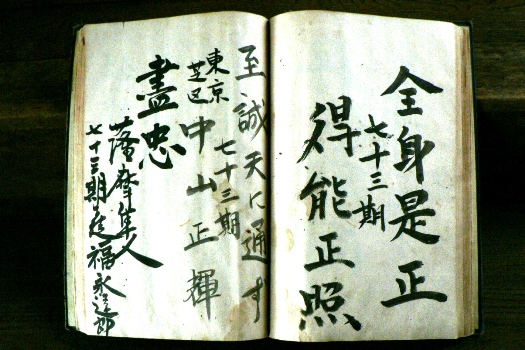 全身是正
七十三期
得能正照
至誠天に通す
東京
芝区
七十三期
中山正輝
盡忠
薩摩隼人
七十三期 福永